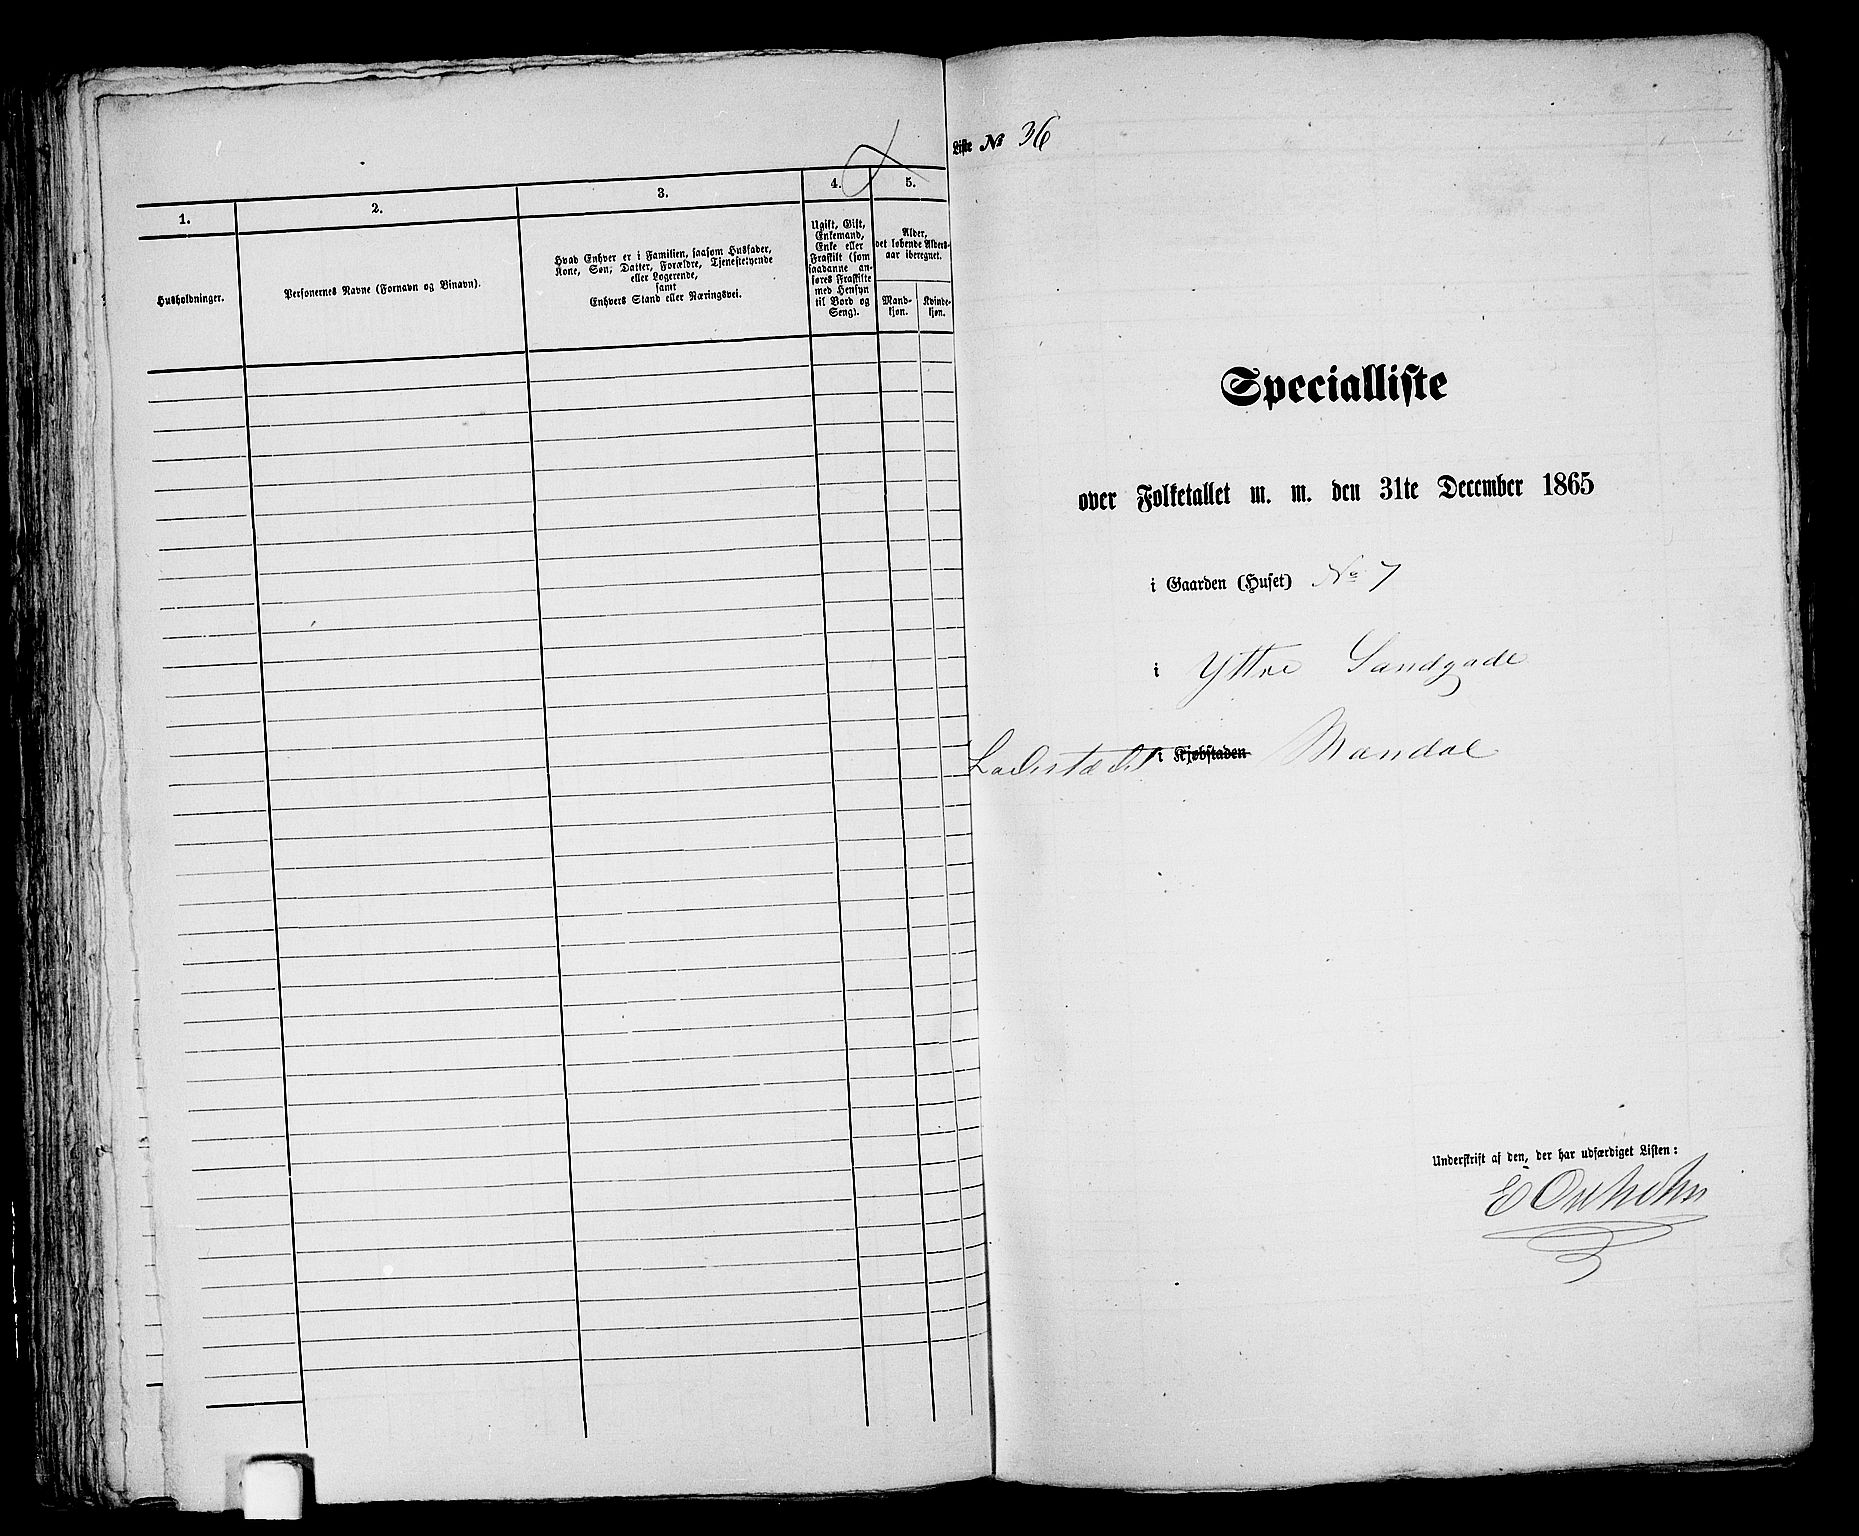 1.
2.
3.
4.
5.
Husholdninger.
Personernes Navne (Fornavn og Binavn).
Hvad Enhver er i Familien, saasom Husfader,
Kone, Søn, Datter, Forældre, Tjenestetyende
eller Logerende,
samt
Enhvers Stand eller Næringsvei.
Ugift, Gift,
Enkemand,
Enke eller
Fraskilt (som
saadanne an-
føres Fraskilte
med Hensyn
til Bord og
Seng).
Alder,
det løbende Alders-
aar iberegnet.
Mand-
kjøn.
Kvinde-
kjøn.
Liste № 36
Specialliste
over Folketallet m. m. den 31te December 1865
i Gaarden (Huset) No 7
i Yttre Sandgade
Ladestædet i Kjøbstaden Mandal
Underskrift af den, der har udfærdiget Listen:
E